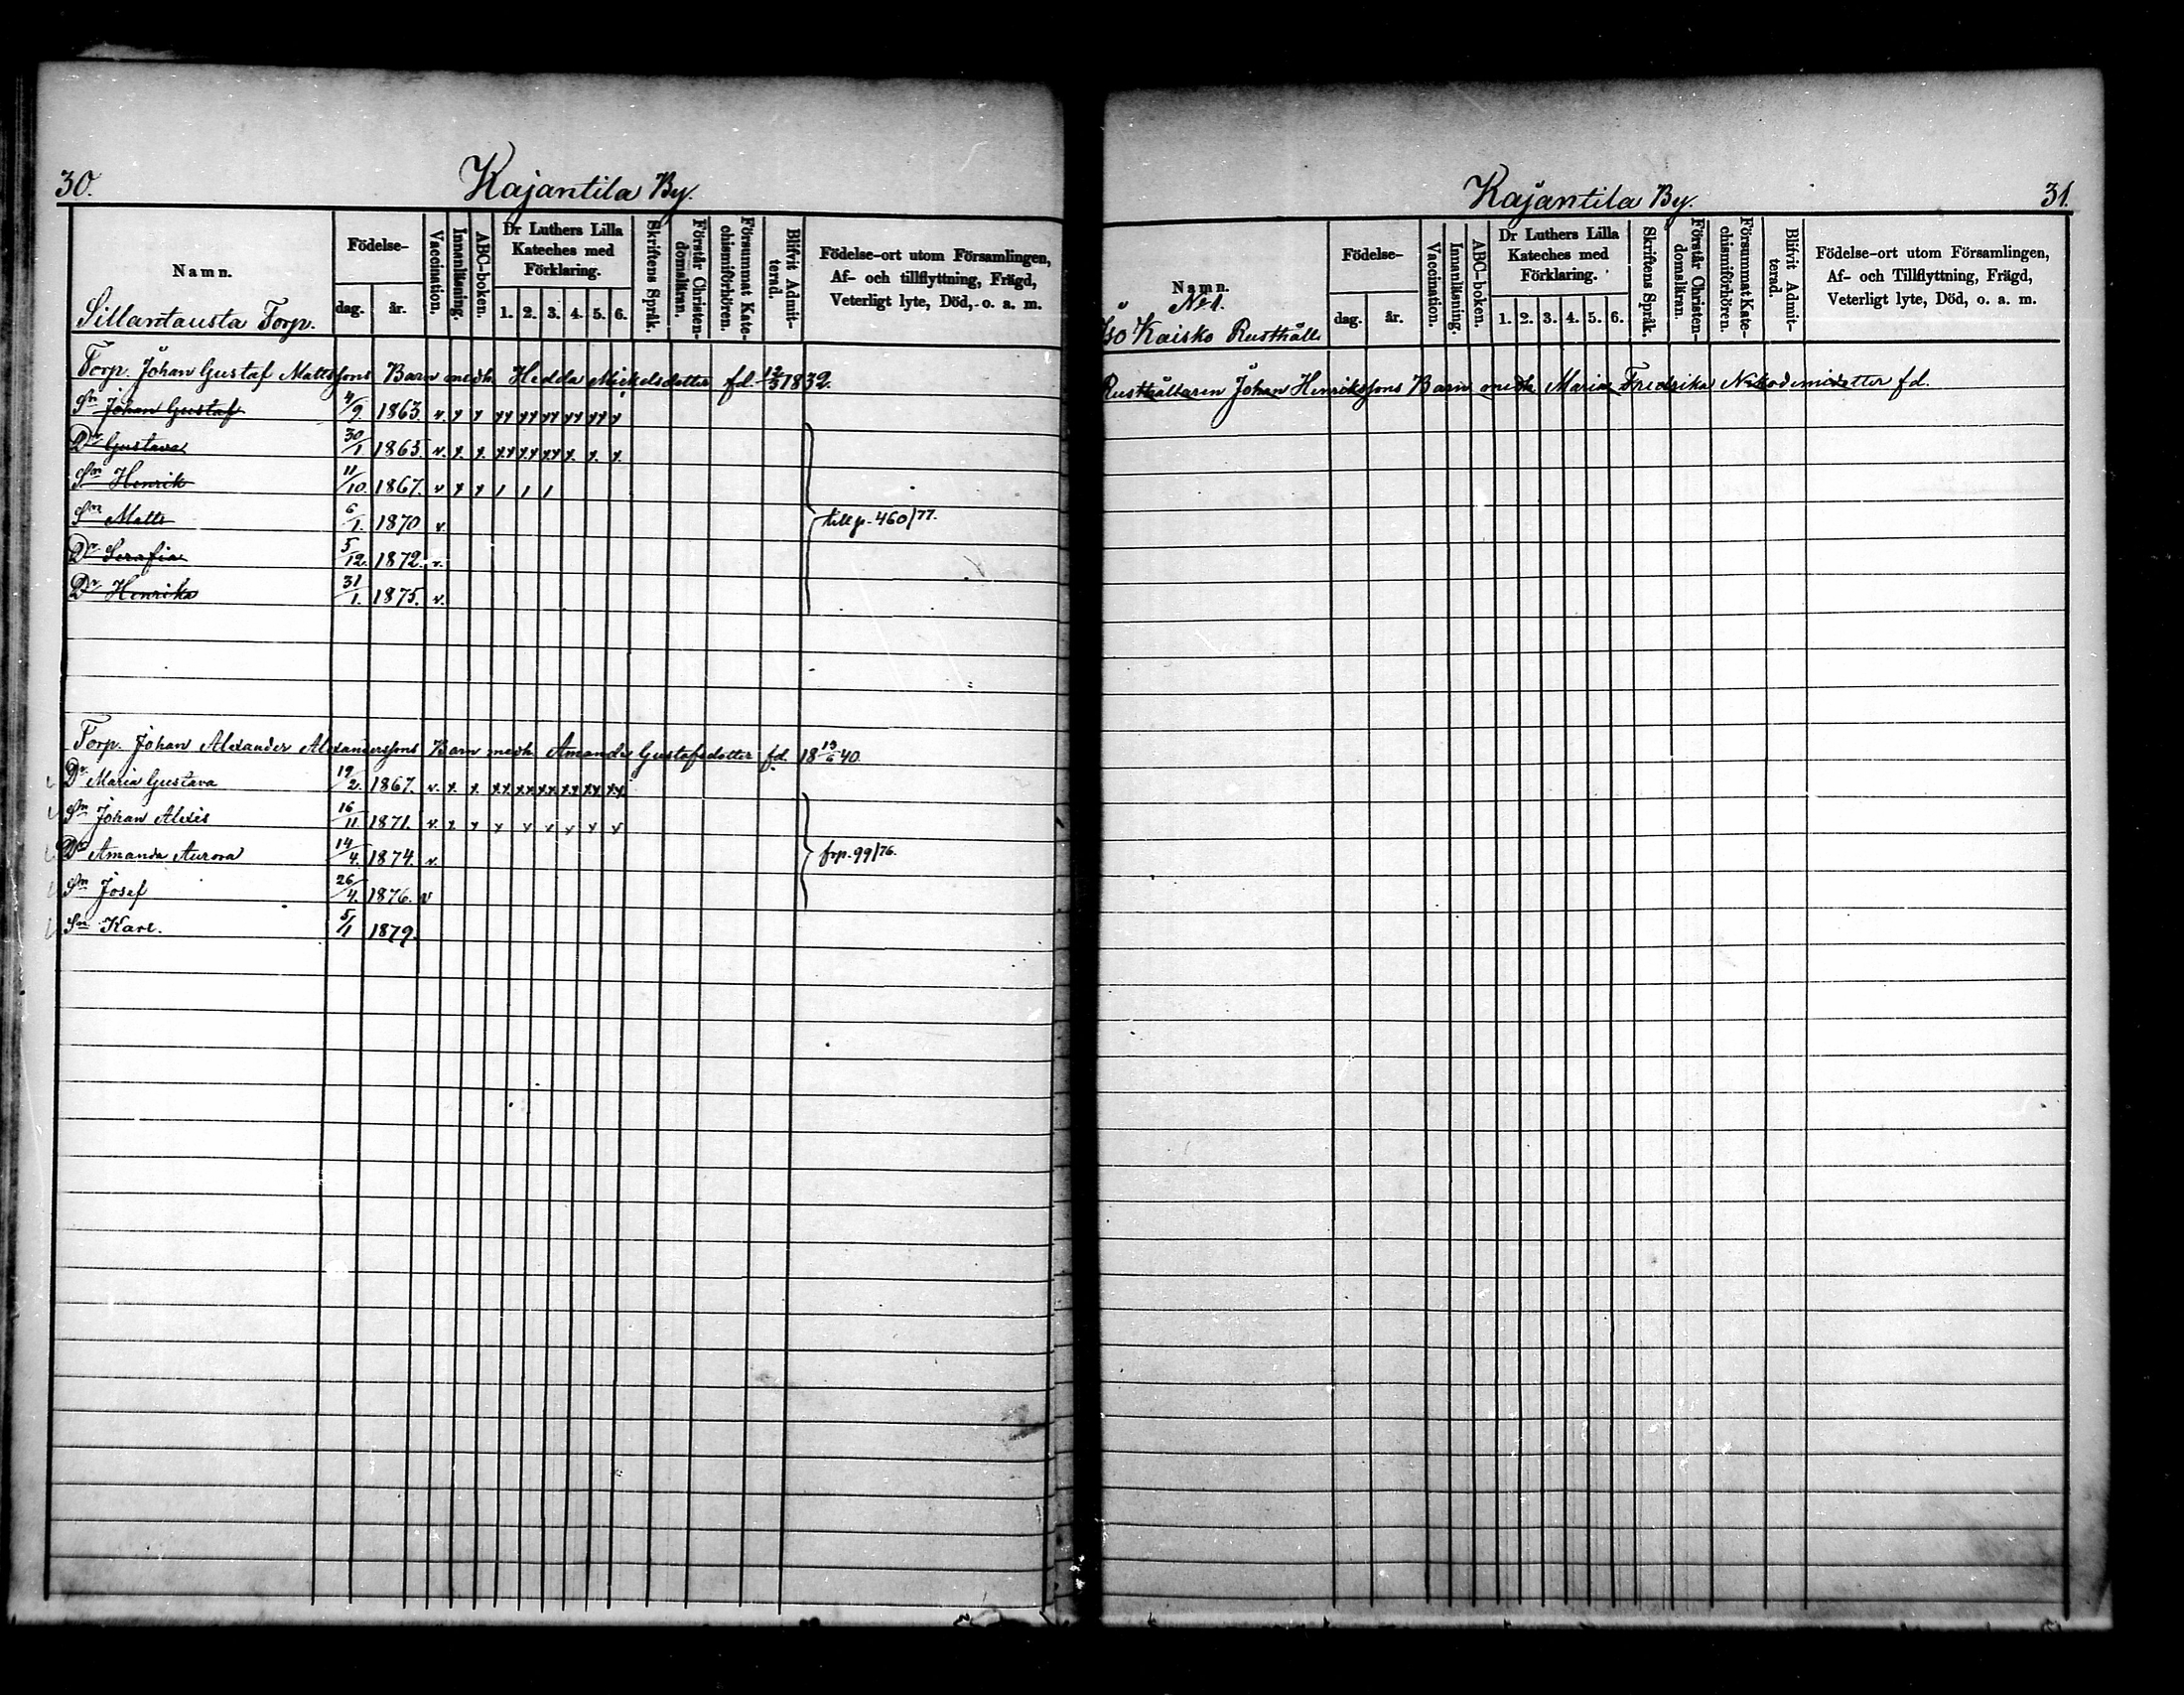 30.
Kajantila By.
Namn.
Sillantausta Torp.
Födelse-
dag.
år.
Vaccination.
Innanläsning.
ABC-boken.
Dr Luthers Lilla
Kateches med
Förklaring.
1. 2. 3. 4. 5. 6.
Skriftens Språk.
Förstår Christen-
domsläran.
Försummat Kate-
chismiförhören.
Blifvit Admit-
terad.
Födelse-ort utom Församlingen,
Af- och tillflyttning, Frägd,
Veterligt lyte, Död, o. a. m.
Torp. Johan Gustaf Mattssons Barn medh Hedda Mickelsdotter fd. 12/5 1832.
Sn Johan Gustaf 4/9 1863 v. x x xx xx xx xx xx x
Dr Gustava 30/1 1865. v. x. x. xx xx xx x. x. x.
Sn Henrik 11/10 1867. v x x 1 1 1
Sn Matts 6/1. 1870 v.
till p. 460/77.
Dr Serafia 5/12. 1872. v.
Dr Henrika 31/1. 1875. v.
Torp. Johan Alexander Alexanderssons Barn medh Amanda Gustafsdotter fd. 18 13/6 40.
Dr Maria Gustava 19/2. 1867. v. x. x. xx xx xx xx xx xx
Sn Johan Alexis 16/11 1871. v. x. x x x x x x x
Dr Amanda Aurora 14/4. 1874. v.
frp. 99/76.
Sn Josef 26/4. 1876. v
Sn Karl. 5/1 1879.
Kajantila By.
31.
Namn.
No 1.
Iso Kaisko Rusthåll
Födelse-
dag.
år.
Vaccination.
Innanläsning.
ABC-boken.
Dr Luthers Lilla
Kateches med
Förklaring.
1. 2. 3. 4. 5. 6.
Skriftens Språk.
Förstår Christen-
domsläran.
Försummat Kate-
chismiförhören.
Blifvit Admit-
terad.
Födelse-ort utom Församlingen,
Af- och Tillflyttning, Frägd,
Veterligt lyte, Död, o. a. m.
Rusthållaren Johan Henrikssons Barn medh Maria Fredrika Nikodemidotter fd.